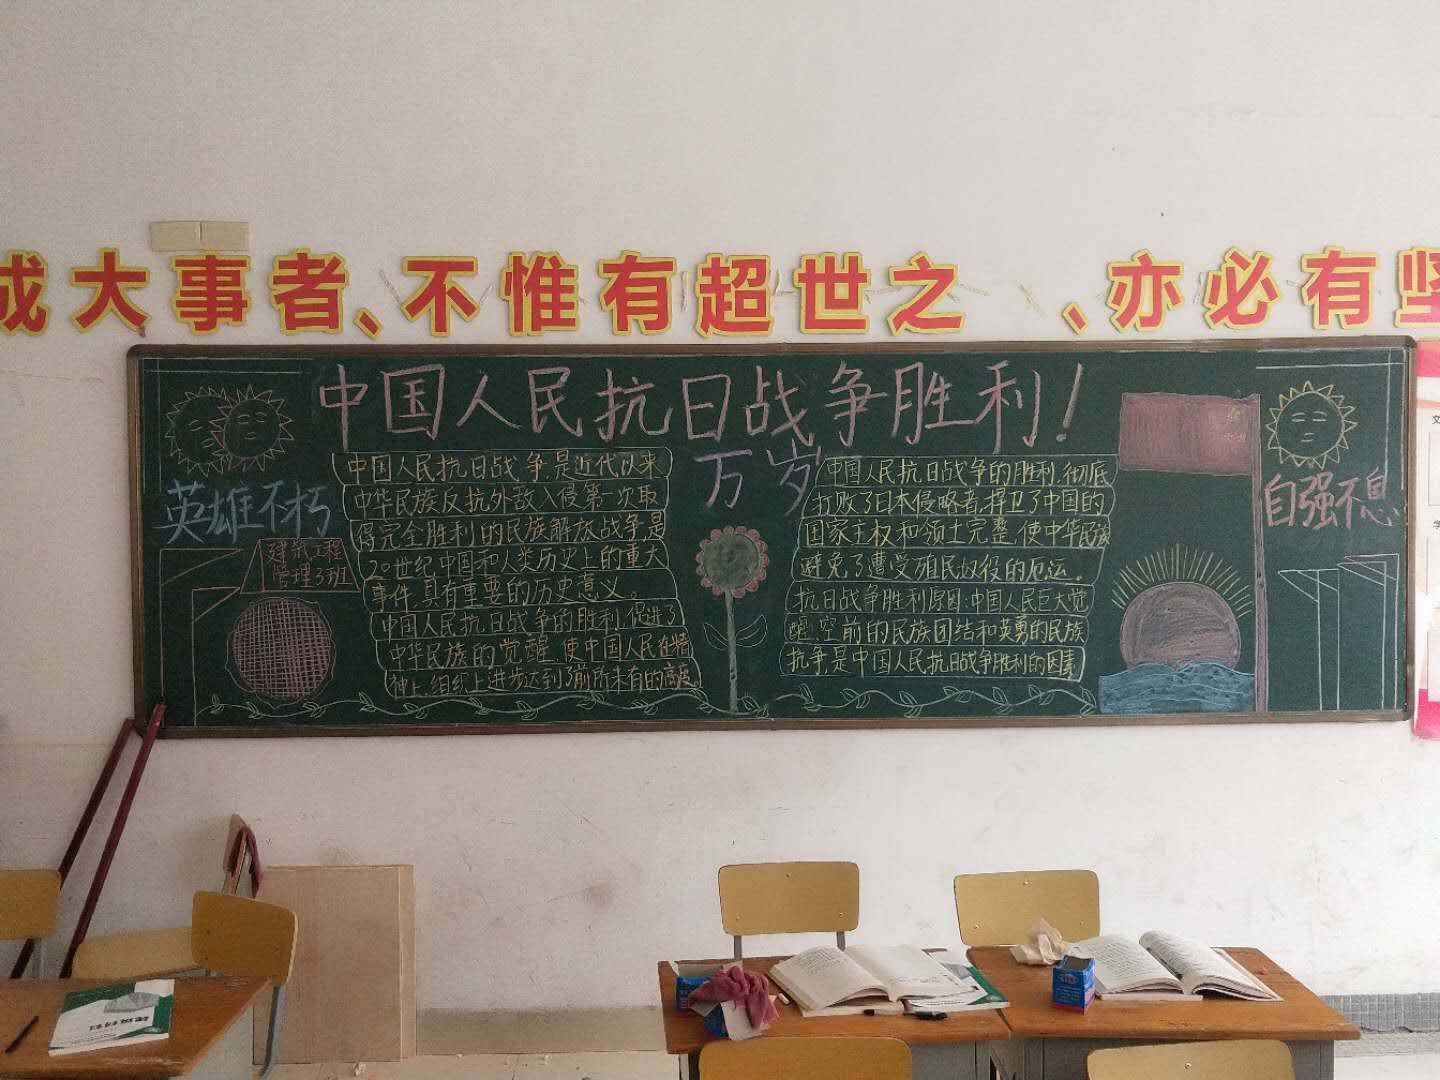 成大事者、不惟有超世之、亦必有坚
中国人民抗日战争胜利!
万岁
英雄不朽
建筑工程
管理3班
中国人民抗日战争是近代以来
中华民族反抗外敌入侵第一次取
得完全胜利的民族解放战争,是
20世纪中国和人类历史上的重大
事件,具有重要的历史意义。
中国人民抗日战争的胜利,促进了
中华民族的觉醒,使中国人民在精
神上、组织上进步达到了前所未有的高度。
中国人民抗日战争的胜利,彻底
打败了日本侵略者,捍卫了中国的
国家主权和领土完整,使中华民族
避免了遭受殖民奴役的厄运。
抗日战争胜利原因:中国人民巨大觉
醒,空前的民族团结和英勇的民族
抗争,是中国人民抗日战争胜利的因素
自强不息
建筑材料